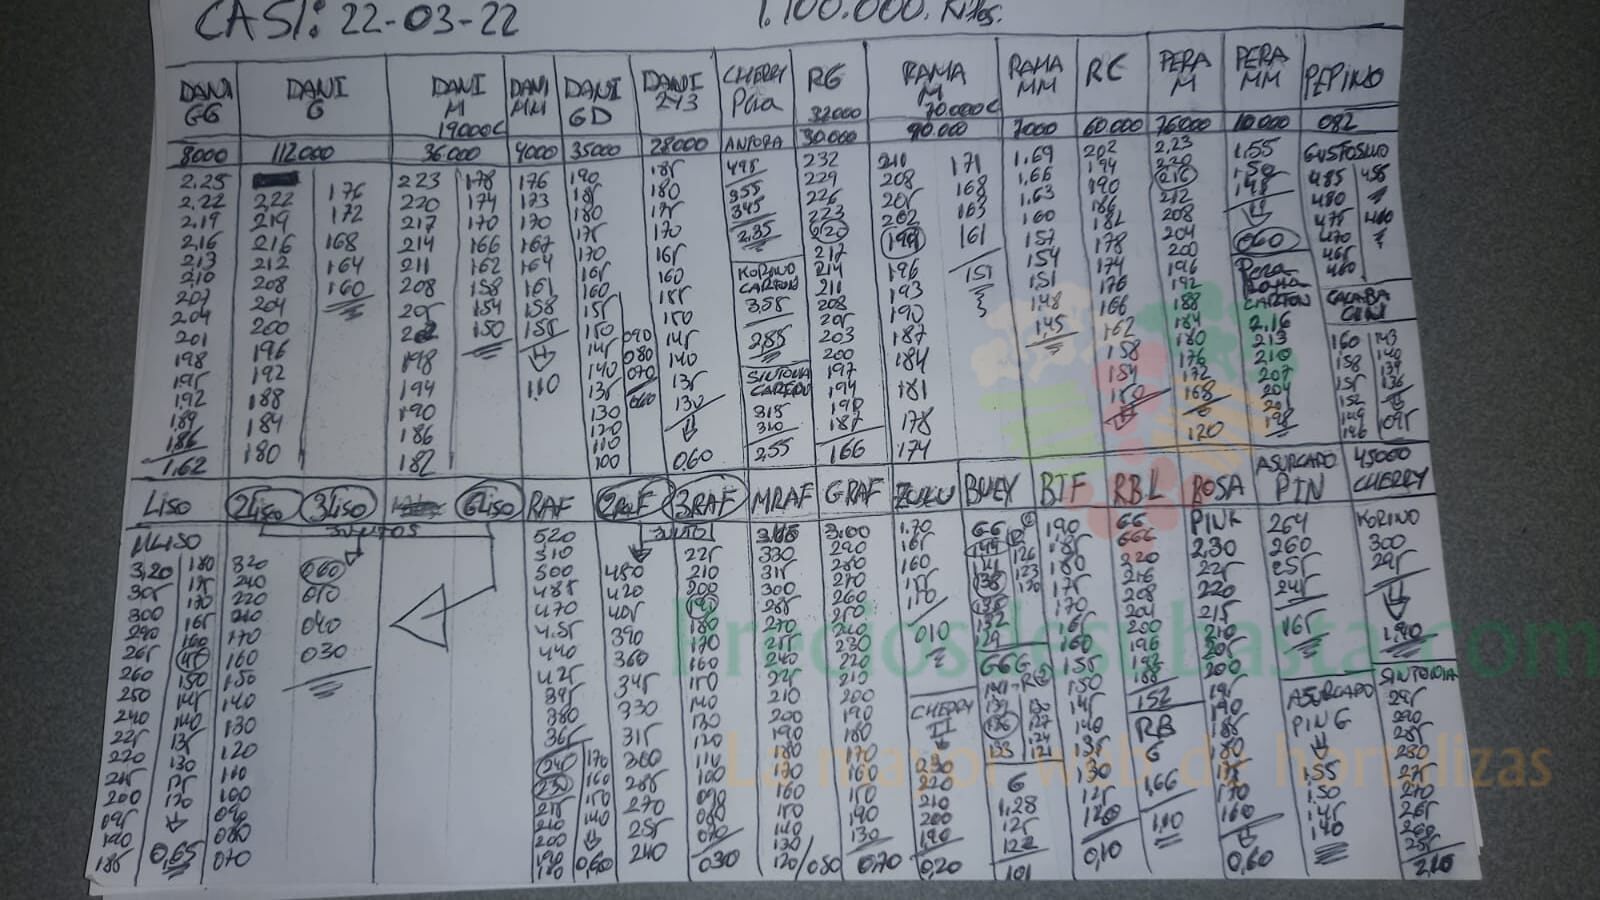 CASI: 22-03-22
1.100.000. Kilos.
DANI GG
DANI G
DANI M 19000C
DANI MM
DANI GD
DANI 2y3
CHERRY Pera
RG 32000
RAMA M 70.000C
RAMA MM
RC
PERA M
PERA MM
PEPINO
8000
112000
36.000
4000
35000
28000
ANFORA
30.000
90.000
7000
60.000
76000
10.000
082
2,25
2,22
2,19
2,16
2,13
2,10
207
204
201
198
195
1,92
189
186
1,62
222
219
216
212
208
204
200
196
192
188
184
180
176
172
168
164
160
223
220
217
214
211
208
205
202
198
194
190
186
182
178
174
170
166
162
158
154
150
176
173
170
167
164
161
158
155
110
190
185
180
175
170
165
160
155
150
145
140
135
130
120
110
100
090
080
070
060
185
180
175
170
165
160
155
150
145
140
135
130
0,60
495
355
345
2,35
KORINO CARTON
3,55
2,85
SINTONIA CARTON
315
310
2,55
232
229
226
223
220
217
214
211
208
205
203
200
197
194
190
187
166
210
208
205
202
199
196
193
190
187
184
181
178
174
171
168
163
161
151
1,69
1,66
1,63
160
157
154
151
148
145
202
194
190
186
182
178
174
170
166
162
158
154
150
2,23
220
216
212
208
204
200
196
192
188
184
180
176
172
168
120
1,55
150
145
060
Pera Rama CARTON
2,16
213
210
207
204
201
198
485
480
475
470
465
460
160
158
155
152
149
146
143
140
139
136
095
LISO
2Liso
3Liso
6Liso
RAF
2RAF
3RAF
MRAF
GRAF
ZULU
BUEY
BTF
RBL
ROSA
ASURCADO PIN
45000 CHERRY
JUNTOS
MLISO
3,20
305
300
290
265
260
250
240
225
220
215
200
095
190
185
180
175
170
165
160
155
150
145
140
135
130
125
120
0,65
320
240
220
210
170
160
150
140
130
120
110
100
090
080
070
060
050
040
030
520
510
500
485
470
455
440
425
395
380
365
245
230
215
210
200
190
180
170
160
150
140
0,60
450
420
405
390
360
345
330
315
300
285
270
255
240
JUNTO
225
210
200
190
180
170
160
150
140
130
120
110
100
090
080
070
030
345
330
315
300
285
270
255
240
225
210
200
190
180
170
160
150
140
130
120/0,80
3,00
290
280
270
260
250
240
230
220
200
190
180
170
160
150
190
130
0,70
1.70
165
160
155
150
010
CHERRY
230
220
210
200
190
0,20
GG
144
141
138
135
132
129
126
123
120
GGG
141
139
136
133
130
127
124
121
G
1,28
125
122
101
190
185
180
175
170
165
160
155
150
145
140
135
130
125
120
0,10
GG
GGG
220
216
208
204
200
196
192
188
152
RB
G
1,66
1,10
PINK
2,30
225
220
215
210
205
200
195
190
185
180
175
170
160
0,60
264
260
255
245
165
ASURCADO PIN G
155
150
145
140
KORINO
300
295
1,90
SINTONIA
295
290
285
280
275
270
265
260
255
2,10
Preciosdesubasta.com
La mayor web de hortalizas